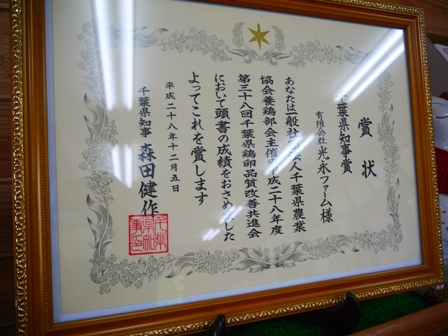 賞状
千葉県知事賞
有限会社 光永ファーム様
あなたは一般社団法人千葉県農業
協会養鶏部会主催の平成二十八年度
第三十八回千葉県鶏卵品質改善共進会
において頭書の成績をおさめました
よってこれを賞します
平成二十八年十二月五日
千葉県知事 森田健作